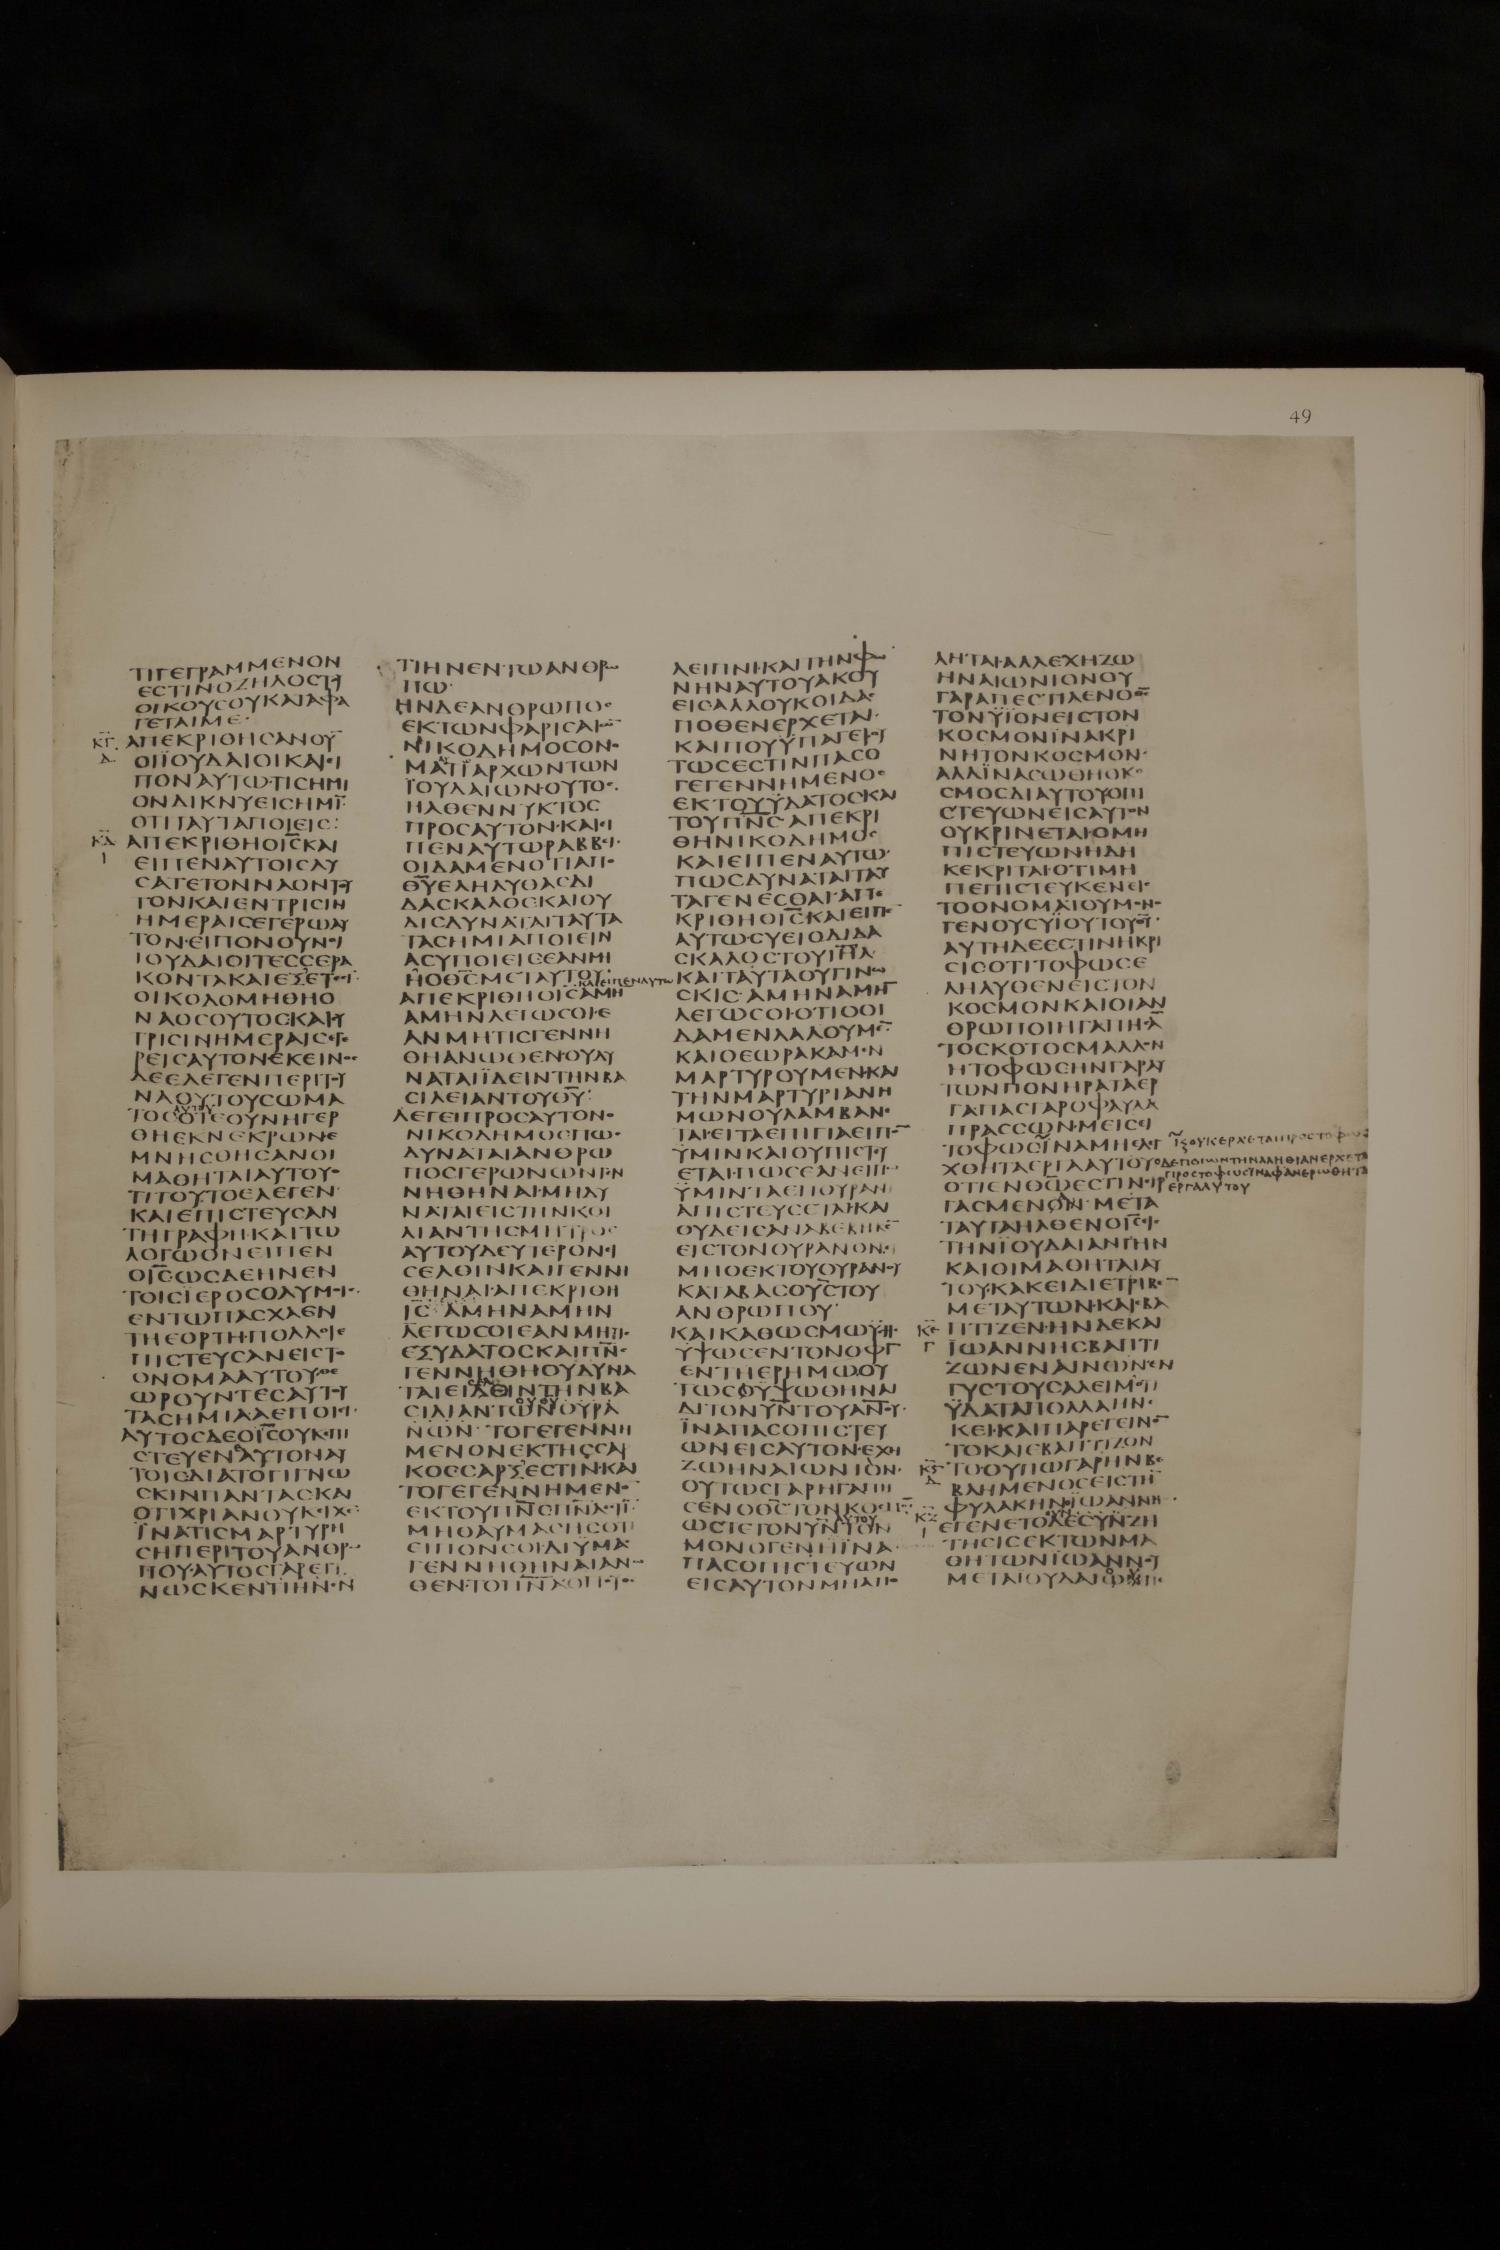 49
ΤΙΓΕΓΡΑΜΜΕΝΟΝ
ΕϹΤΙΝΟΖΗΛΟϹΤΟΥ
ΟΙΚΟΥϹΟΥΚΑΤΑΦΑ
ΓΕΤΑΙΜΕ·
ΚΓ ΑΠΕΚΡΙΘΗϹΑΝΟΥ̅
Α ΟΙΪΟΥΔΑΙΟΙΚΑΙΕΙ
ΠΟΝΑΥΤΩ·ΤΙϹΗΜΙ
ΟΝΔΙΚΝΥΕΙϹΗΜΙ̅
ΟΤΙΤΑΥΤΑΠΟΙΕΙϹ:
ΚΔ ΑΠΕΚΡΙΘΗΟΙ̅Ϲ̅ΚΑΙ
Ι ΕΙΠΕΝΑΥΤΟΙϹΛΥ
ϹΑΤΕΤΟΝΝΑΟΝΤΟΥ
ΤΟΝΚΑΙΕΝΤΡΙϹΙΝ
ΗΜΕΡΑΙϹΕΓΕΡΩΑΥ
ΤΟΝ·ΕΙΠΟΝΟΥΝΟΙ
ΙΟΥΔΑΙΟΙΤΕϹϹΕΡΑ
ΚΟΝΤΑΚΑΙΕΞΕΤΕϹΙ̅
ΟΙΚΟΔΟΜΗΘΗΟ
ΝΑΟϹΟΥΤΟϹΚΑΙϹΥ
ΤΡΙϹΙΝΗΜΕΡΑΙϹΕΓΕ
ΡΕΙϹΑΥΤΟΝΕΚΕΙΝΟϹ
ΔΕΕΛΕΓΕΝΠΕΡΙΤΟΥ
ΝΑΟΥΤΟΥϹΩΜΑ
ΑΥΤΟΥ
ΤΟϹΟΤΕΟΥΝΗΓΕΡ
ΘΗΕΚΝΕΚΡΩΝΕ
ΜΝΗϹΘΗϹΑΝΟΙ
ΜΑΘΗΤΑΙΑΥΤΟΥΟ
ΤΙΤΟΥΤΟΕΛΕΓΕΝ
ΚΑΙΕΠΙϹΤΕΥϹΑΝ
ΤΗΓΡΑΦΗ·ΚΑΙΤΩ
ΛΟΓΩΟΝΕΙΠΕΝ
ΟΙ̅Ϲ̅ΩϹΔΕΗΝΕΝ
ΤΟΙϹΙΕΡΟϹΟΛΥΜΟΙϹ
ΕΝΤΩΠΑϹΧΑΕΝ
ΤΗΕΟΡΤΗ·ΠΟΛΛΟΙΕ
ΠΙϹΤΕΥϹΑΝΕΙϹΤΟ
ΟΝΟΜΑΑΥΤΟΥΘΕ
ΩΡΟΥΝΤΕϹΑΥΤΟΥ
ΤΑϹΗΜΙΑΑΕΠΟΙΕΙ·
ΑΥΤΟϹΔΕΟΙ̅Ϲ̅ΟΥΚΕΠΙ
ϹΤΕΥΕΝΑΥΤΟΝΑΥ
ΤΟΙϹΔΙΑΤΟΓΙΓΝΩ
ϹΚΙΝΠΑΝΤΑϹΚΑΙ
ΟΤΙΧΡΙΑΝΟΥΚΕΙΧΕ
ΪΝΑΤΙϹΜΑΡΤΥΡΗ
ϹΗΠΕΡΙΤΟΥΑΝΘΡΩ
ΠΟΥ·ΑΥΤΟϹΓΑΡΕΓΙ
ΝΩϹΚΕΝΤΙΗΝΕΝ
ΤΙΗΝΕΝΤΩΑΝΘΡΩ
ΠΩ·
ΗΝΔΕΑΝΘΡΩΠΟϹ
ΕΚΤΩΝΦΑΡΙϹΑΙΩ̅
ΝΙΚΟΔΗΜΟϹΟΝΟ
ΜΑΤΙΑΡΧΩΝΤΩΝ
ΪΟΥΔΑΙΩΝ·ΟΥΤΟϹ
ΗΛΘΕΝΝΥΚΤΟϹ
ΠΡΟϹΑΥΤΟΝ·ΚΑΙΕΙ
ΠΕΝΑΥΤΩΡΑΒΒΕΙ·
ΟΙΔΑΜΕΝΟΤΙΑΠΟ
Θ̅Υ̅ΕΛΗΛΥΘΑϹΔΙ
ΔΑϹΚΑΛΟϹΚΑΙΟΥ
ΔΙϹΔΥΝΑΤΑΙΤΑΥΤΑ
ΤΑϹΗΜΙΑΠΟΙΕΙΝ
ΑϹΥΠΟΙΕΙϹΕΑΝΜΗ
ΗΟΘ̅Ϲ̅ΜΕΤΑΥΤΟΥ:
ΚΑΙΕΙΠΕΝΑΥΤΩ
ΑΠΕΚΡΙΘΗΟΙ̅Ϲ̅ΑΜΗ
ΑΜΗΝΛΕΓΩϹΟΙ·Ε
ΑΝΜΗΤΙϹΓΕΝΝΗ
ΘΗΑΝΩΘΕΝ·ΟΥΔΥ
ΝΑΤΑΙΪΔΕΙΝΤΗΝΒΑ
ϹΙΛΕΙΑΝΤΟΥΘ̅Υ̅:
ΛΕΓΕΙΠΡΟϹΑΥΤΟΝΟ
ΝΙΚΟΔΗΜΟϹΠΩϹ
ΔΥΝΑΤΑΙΑΝΘΡΩ
ΠΟϹΓΕΡΩΝΩΝΓΕΝ
ΝΗΘΗΝΑΙ·ΜΗΔΥ
ΝΑΤΑΙΕΙϹΤΗΝΚΟΙ
ΛΙΑΝΤΗϹΜΗΤΡΟϹ
ΑΥΤΟΥΔΕΥΤΕΡΟΝΕΙ
ϹΕΛΘΙΝΚΑΙΓΕΝΝΗ
ΘΗΝΑΙ·ΑΠΕΚΡΙΘΗ
Ι̅Ϲ̅ ΑΜΗΝΑΜΗΝ
ΛΕΓΩϹΟΙΕΑΝΜΗΤΙϹ
ΕΞΥΔΑΤΟϹΚΑΙΠ̅Ν̅Ϲ̅
ΓΕΝΝΗΘΗΟΥΔΥΝΑ
ΤΑΙΕΙΔΕΙΝΤΗΝΒΑ
ϹΙΛΙΑΝΤΩΝΟΥΡΑ
ΝΩΝ· ΤΟΓΕΓΕΝΝΗ
ΜΕΝΟΝΕΚΤΗϹϹΑΡ
ΚΟϹϹΑΡΞΕϹΤΙΝ·ΚΑΙ
ΤΟΓΕΓΕΝΝΗΜΕΝΟ̅
ΕΚΤΟΥΠ̅Ν̅Ϲ̅Π̅Ν̅Α̅ΕϹΤΙ̅
ΜΗΘΑΥΜΑϹΗϹΟΤΙ
ΕΙΠΟΝϹΟΙ·ΔΙΫΜΑϹ
ΓΕΝΝΗΘΗΝΑΙΑΝΩ
ΘΕΝ·ΤΟΠ̅Ν̅Α̅ΟΠΟΥ
ΛΕΙΠΝΙ·ΚΑΙΤΗΝΦΩ
ΝΗΝΑΥΤΟΥΑΚΟΥ
ΕΙϹΑΛΛΟΥΚΟΙΔΑϹ
ΠΟΘΕΝΕΡΧΕΤΑΙ·
ΚΑΙΠΟΥΫΠΑΓΕΙΟΥ
ΤΩϹΕϹΤΙΝΠΑϹΟ
ΓΕΓΕΝΝΗΜΕΝΟϹ
ΕΚΤΟΥΫΔΑΤΟϹΚΑΙ
ΤΟΥΠ̅Ν̅Ϲ̅·ΑΠΕΚΡΙ
ΘΗΝΙΚΟΔΗΜΟϹ
ΚΑΙΕΙΠΕΝΑΥΤΩ·
ΠΩϹΔΥΝΑΤΑΙΤΑΥ
ΤΑΓΕΝΕϹΘΑΙ·ΑΠΕ
ΚΡΙΘΗΟΙ̅Ϲ̅ΚΑΙΕΙΠΕ̅
ΑΥΤΩ·ϹΥΕΙΟΔΙΔΑ
ϹΚΑΛΟϹΤΟΥΙ̅Η̅Λ̅
ΚΑΙΤΑΥΤΑΟΥΓΙΝΩ
ϹΚΙϹ·ΑΜΗΝΑΜΗ̅
ΛΕΓΩϹΟΙ·ΟΤΙΟΟΙ
ΔΑΜΕΝΛΑΛΟΥΜΕ̅
ΚΑΙΟΕΩΡΑΚΑΜΕΝ
ΜΑΡΤΥΡΟΥΜΕΝ·ΚΑΙ
ΤΗΝΜΑΡΤΥΡΙΑΝΗ
ΜΩΝΟΥΛΑΜΒΑΝΕ
ΤΑΙ·ΕΙΤΑΕΠΙΓΙΑΕΙΠΟ̅
ΫΜΙΝΚΑΙΟΥΠΙϹΤΕΥ
ΕΤΑΙ·ΠΩϹΕΑΝΕΙΠΩ
ΫΜΙΝΤΑΕΠΟΥΡΑΝΙ
ΑΠΙϹΤΕΥϹΕΤΑΙ·ΚΑΙ
ΟΥΔΕΙϹΑΝΑΒΕΒΗΚΕ̅
ΕΙϹΤΟΝΟΥΡΑΝΟΝ·Ι
ΜΗΟΕΚΤΟΥΟΥΡΑΝΟΥ
ΚΑΤΑΒΑϹΟΥ̅Ϲ̅ΤΟΥ
ΑΝΘΡΩΠΟΥ·
ΚΑΙΚΑΘΩϹΜΩΫϹΗϹ
ΥΨΩϹΕΝΤΟΝΟΦΙ̅
ΕΝΤΗΕΡΗΜΩ·ΟΥ
ΤΩϹΟΫΨΩΘΗΝΑΙ
ΔΙΤΟΝΥ̅Ν̅ΤΟΥΑΝΟΥ·
ΪΝΑΠΑϹΟΠΙϹΤΕΥ
ΩΝΕΙϹΑΥΤΟΝ·ΕΧΗ
ΖΩΗΝΑΙΩΝΙΟΝ·
ΟΥΤΩϹΓΑΡΗΓΑΠΗ
ϹΕΝΟΘ̅Ϲ̅ΤΟΝΚΟϹΜΟ̅
ΩϹΤΕΤΟΝΥ̅Ν̅ΤΟΝ
ΜΟΝΟΓΕΝΗΪΝΑ
ΠΑϹΟΠΙϹΤΕΥΩΝ
ΕΙϹΑΥΤΟΝΜΗΑΠΟ
ΛΗΤΑΙ·ΑΛΛΕΧΗΖΩ
ΗΝΑΙΩΝΙΟΝΟΥ
ΓΑΡΑΠΕϹΤΙΛΕΝΟΘ̅Ϲ̅
ΤΟΝΫΪΟΝΕΙϹΤΟΝ
ΚΟϹΜΟΝΪΝΑΚΡΙ
ΝΗΤΟΝΚΟϹΜΟΝ·
ΑΛΛΪΝΑϹΩΘΗΟΚΟ
ϹΜΟϹΔΙΑΥΤΟΥΟΠΙ
ϹΤΕΥΩΝΕΙϹΑΥΤΟΝ
ΟΥΚΡΙΝΕΤΑΙ·ΟΜΗ
ΠΙϹΤΕΥΩΝ·ΗΔΗ
ΚΕΚΡΙΤΑΙ·ΟΤΙΜΗ
ΠΕΠΙϹΤΕΥΚΕΝΕΙϹ
ΤΟΟΝΟΜΑΙΟΥΜΟΝΟ
ΓΕΝΟΥϹΥΪΟΥΤΟΥΘ̅Υ̅·
ΑΥΤΗΔΕΕϹΤΙΝΗΚΡΙ
ϹΙϹΟΤΙΤΟΦΩϹΕ
ΛΗΛΥΘΕΝΕΙϹΤΟΝ
ΚΟϹΜΟΝΚΑΙΟΙΑΝ
ΘΡΩΠΟΙΗΓΑΠΗϹΑ̅
ΤΟϹΚΟΤΟϹΜΑΛΛΟΝ
ΗΤΟΦΩϹΗΝΓΑΡΑΥ
ΤΩΝΠΟΝΗΡΑΤΑΕΡ
ΓΑΠΑϹΓΑΡΟΦΑΥΛΑ
ΠΡΑϹϹΩΝ·ΜΕΙϹΕΙ
ΤΟΦΩϹΪΝΑΜΗΕΛΕΓ
ΞΟΥΚΕΡΧΕΤΑΙΠΡΟϹΤΟΦΩϹ
ΧΘΗΤΑΕΡΓΑΑΥΤΟΥ
ΟΔΕΠΟΙΩΝΤΗΝΑΛΗΘΙΑΝΕΡΧΕΤΑΙ
ΠΡΟϹΤΟΦΩϹΪΝΑΦΑΝΕΡΩΘΗΤΑ
ΕΡΓΑΑΥΤΟΥ
ΟΤΙΕΝΘ̅Ω̅ΕϹΤΙΝ·ΙΡ
ΓΑϹΜΕΝΟΝ· ΜΕΤΑ
ΤΑΥΤΑΗΛΘΕΝΟΙ̅Ϲ̅ΕΙϹ
ΤΗΝΪΟΥΔΑΙΑΝΓΗΝ
ΚΑΙΟΙΜΑΘΗΤΑΙΑΥ
ΤΟΥ·ΚΑΚΕΙΔΙΕΤΡΙΒΕ̅
ΜΕΤΑΥΤΩΝ·ΚΑΙΕΒΑ
ΚΕ ΠΤΙΖΕΝ·ΗΝΔΕΚΑΙ
Γ ΪΩΑΝΝΗϹΒΑΠΤΙ
ΖΩΝΕΝΑΙΝΩΝΕΝ
ΓΥϹΤΟΥϹΑΛΕΙΜΟΤΙ
ΫΔΑΤΑΠΟΛΛΑΗΝΕ
ΚΕΙ·ΚΑΙΠΑΡΕΓΕΙΝΟ̅
ΤΟΚΑΙΕΒΑΠΤΙΖΟΝ
ΚϚ ΤΟ·ΟΥΠΩΓΑΡΗΝΒΕ
Δ ΒΛΗΜΕΝΟϹΕΙϹΤΗ̅
ΦΥΛΑΚΗΝ·ΪΩΑΝΝΗϹ·
ΚΖ ΕΓΕΝΕΤΟΔΕϹΥΝΖΗ
Ι ΤΗϹΙϹΕΚΤΩΝΜΑ
ΘΗΤΩΝΪΩΑΝΝΟΥ
ΜΕΤΑΙΟΥΔΑΙΟΥ